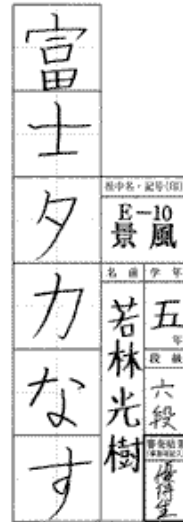 富士タカなす
社中名・記号(印)
E-10
景風
名前
学年
若林光樹
五年
段級
六段
審査結果
優待生